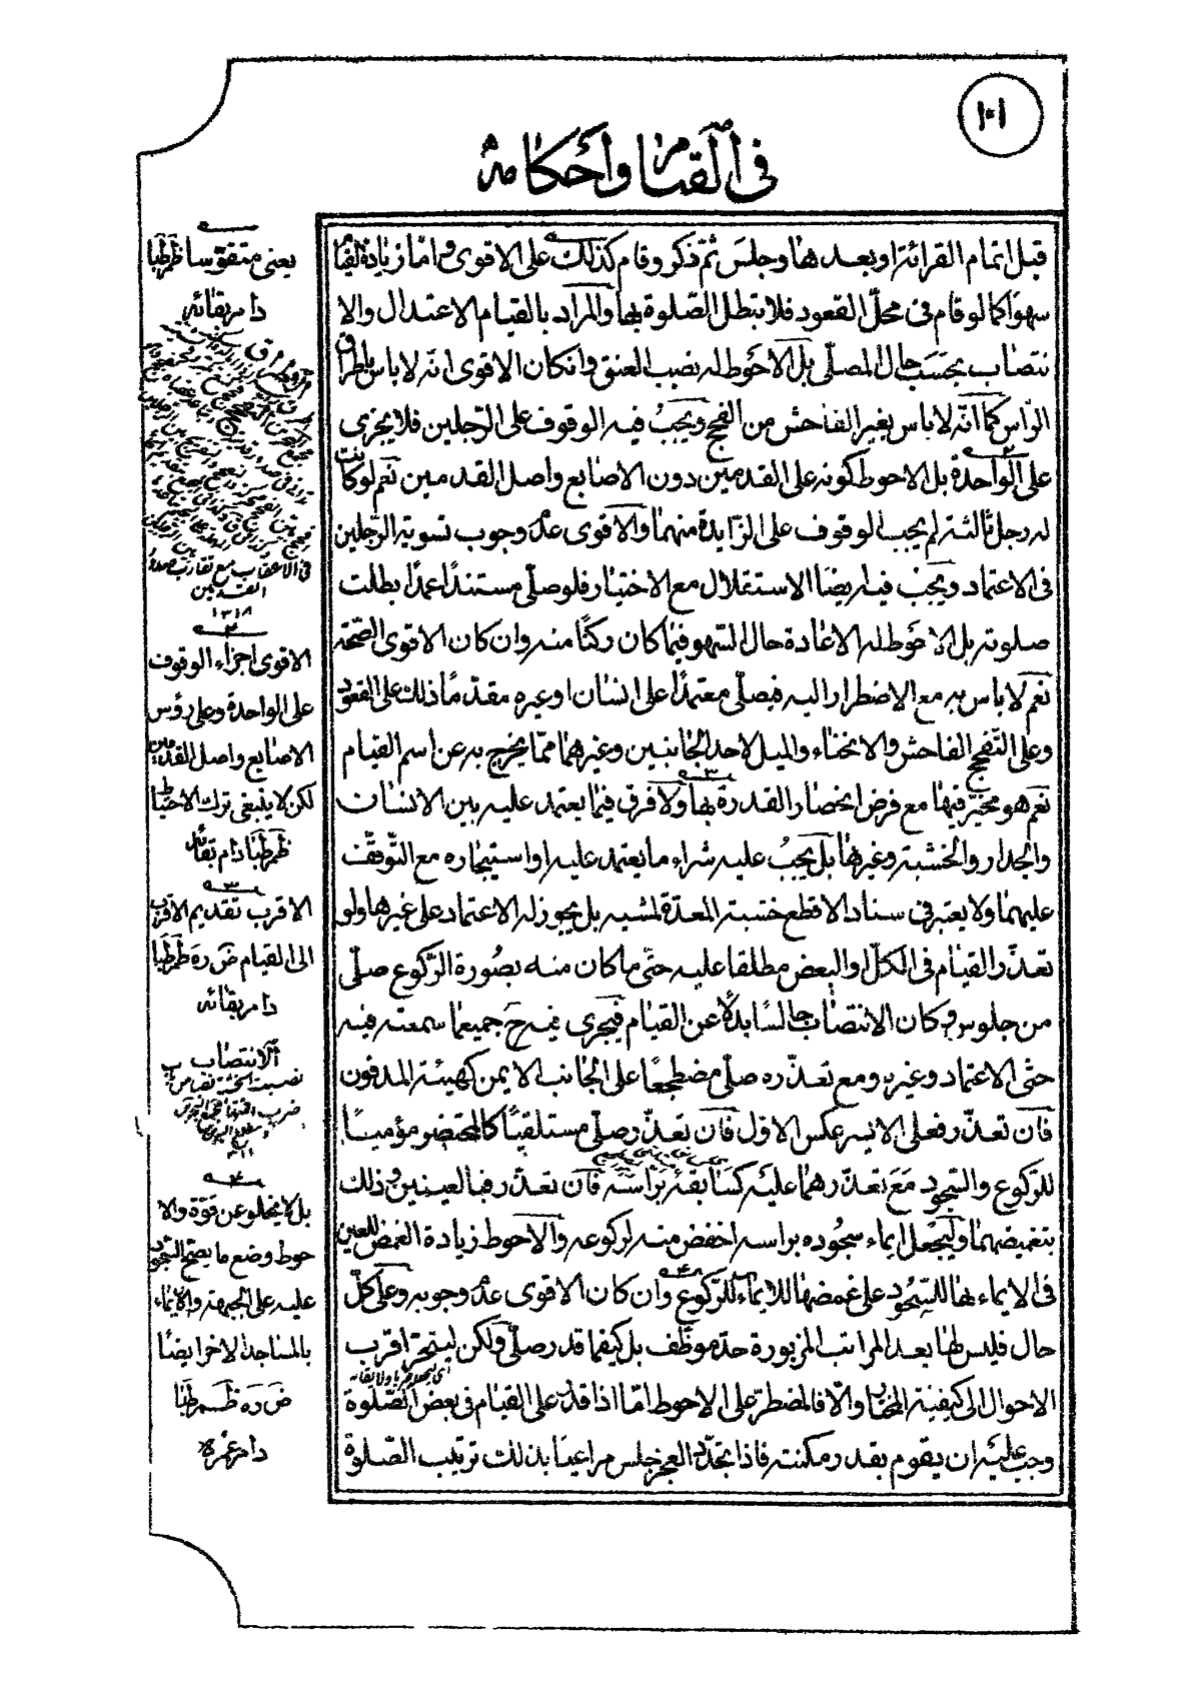 ١٠١
في القيام وأحكامه
قبل اتمام القرائة او بعدها وجلس ثم ذكر وقام كذلك على الاقوى واما زيادة القيام
سهوا كما لو قام في محل القعود فلا تبطل الصلوة بها والمراد بالقيام الاعتدال والا
نتصاب بحسب حال المصلى بل الاحوط له نصب العنق وانكان الاقوى انه لا باس باطراق
الراس كما انه لا باس بغير الفاحش من الفجج ويجب فيه الوقوف على الرجلين فلا يجزى
على الواحدة بل الاحوط كونه على القدمين دون الاصابع واصل القدمين نعم لو كانت
له رجل ثالثة لم يجب الوقوف على الزايدة منهما والاقوى عدم وجوب تسوية الرجلين
في الاعتماد ويجب فيه ايضا الاستقلال مع الاختيار فلو صلى مستندا عمدا بطلت
صلوته بل الاحوط له الاعادة حال السهو فيما كان ركنا منه وان كان الاقوى الصحة
نعم لا باس به مع الاضطرار اليه فيصلى معتمدا على انسان او غيره مقدما ذلك على القعود
وعلى التفجج الفاحش والانحناء والميل لاحد الجانبين وغيرهما مما يخرج به عن اسم القيام
نعم هو مخير فيها مع فرض انحصار القدرة بها ولا فرق فيما يعتمد عليه بين الانسان
والجدار والخشبة وغيرها بل يجب عليه شراء ما يعتمد عليه او استيجاره مع التوقف
عليهما ولا يعتبر في سناد الاقطع خشبته المعدة لمشيه بل يجوز له الاعتماد على غيرها ولو
تعذر القيام في الكل او البعض مطلقا عليه حتى ما كان منه بصورة الركوع صلى
من جلوس وكان الانتصاب جالسا بدلا عن القيام فيجرى فيه ح جميع ما سمعته فيه
حتى الاعتماد وغيره ومع تعذره صلى مضطجعا على الجانب الايمن كهيئة المدفون
فان تعذر فعلى الايسر عكس الاول فان تعذر صلى مستلقيا كالمحتضر مؤميا
للركوع والسجود مع تعذرهما عليه كسابقه براسه فان تعذر فبالعينين وذلك
بتغميضهما وليجعل ايماء سجوده براسه اخفض منه لركوعه والاحوط زيادة الغمض للعين
في الايماء بها للسجود على غمضها للايماء للركوع وان كان الاقوى عدم وجوبه وعلى كل
حال فليس لها بعد المراتب المزبورة حد موظف بل كيفما قدر صلى ولكن ليتحر اقرب
الاحوال الى كيفية المختار والا فالمضطر على الاحوط اما اذا قدر على القيام في بعض الصلوة
وجب عليه ان يقوم بقدر مكنته فاذا تجدد العجز جلس مراعيا بذلك ترتيب الصلوة
يعنى متقوسا ظم طبا
دام بقائه
في الاعقاب مع تقارب صدور
القدمين
١٣١٨
٢
الاقوى اجزاء الوقوف
على الواحدة وعلى رؤس
الاصابع واصل القدمين
لكن لا ينبغى ترك الاحتياط
ظم طبا دام بقائه
٣
الاقرب تقديم الاقرب
الى القيام ض ره ظم طبا
دام بقائه
الانتصاب
٤
بل لا يخلو عن قوة والا
حوط وضع ما يصح السجود
عليه على الجبهة والايماء
بالمساجد الاخر ايضا
ض ره ظم طبا
دام عزه